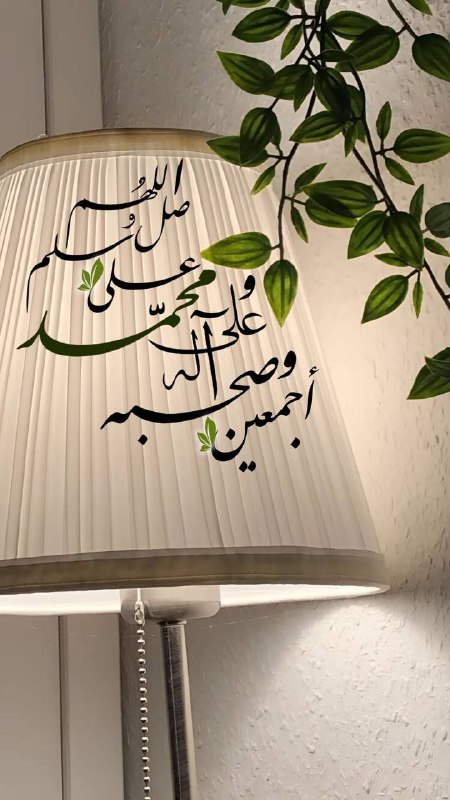 اللهم
صل وسلم
على
محمد
وعلى آله
وصحبه
أجمعين